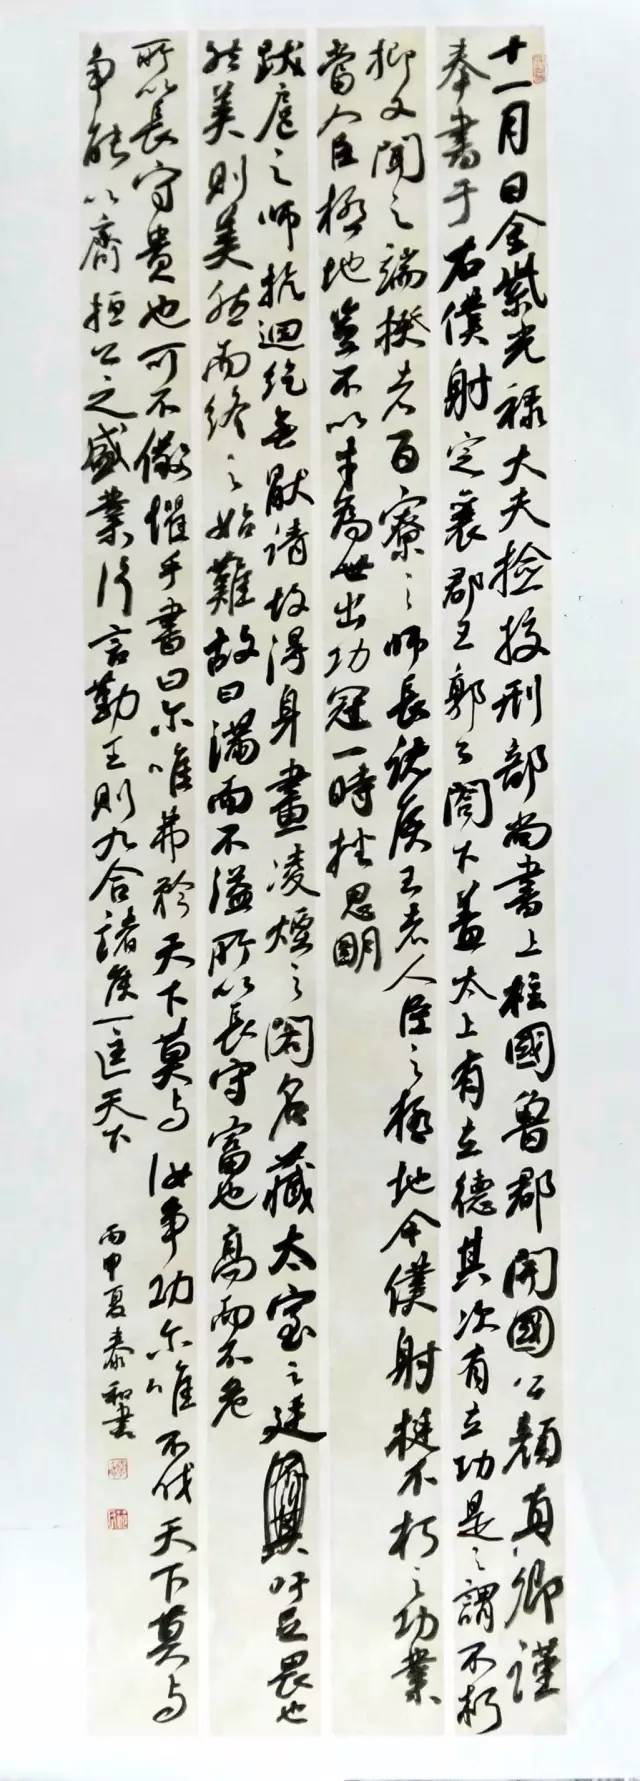 十一月日金紫光祿大夫撿挍刑部尚書上柱國魯郡開國公顏真卿謹
奉書于右僕射定襄郡王郭公閣下蓋太上有立德其次有立功是之謂不朽
抑又聞之端揆者百寮之師長諸侯王者人臣之極地今僕射挺不朽之功業
當人臣極地豈不以才為世出功冠一時挫思明
跋扈之師抗迴紇無猒請故得身畫凌煙之閣名藏太室之廷吁足畏也
然美則美然而終之始難故曰滿而不溢所以長守富也高而不危
所以長守貴也可不儆懼乎書曰尔唯弗矜天下莫与汝争功尔唯不伐天下莫与
争能以齊桓公之盛業片言勤王則九合諸侯一匡天下
丙申夏泰和書